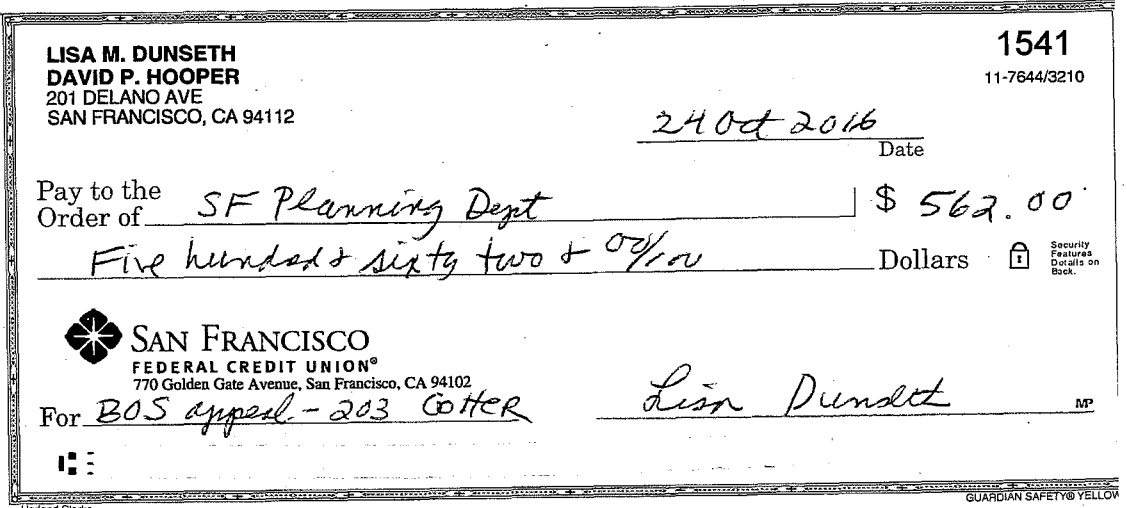 LISA M. DUNSETH
DAVID P. HOOPER
201 DELANO AVE
SAN FRANCISCO, CA 94112
1541
11-7644/3210
24 Oct 2016
Date
Pay to the
Order of SF Planning Dept $ 562.00
Five hundred & sixty two & 00/100 Dollars
Security
Features
Details on
Back.
SAN FRANCISCO
FEDERAL CREDIT UNION®
770 Golden Gate Avenue, San Francisco, CA 94102
For BOS appeal - 203 Cotter
Lisa Dunseth
MP
GUARDIAN SAFETY® YELLOW